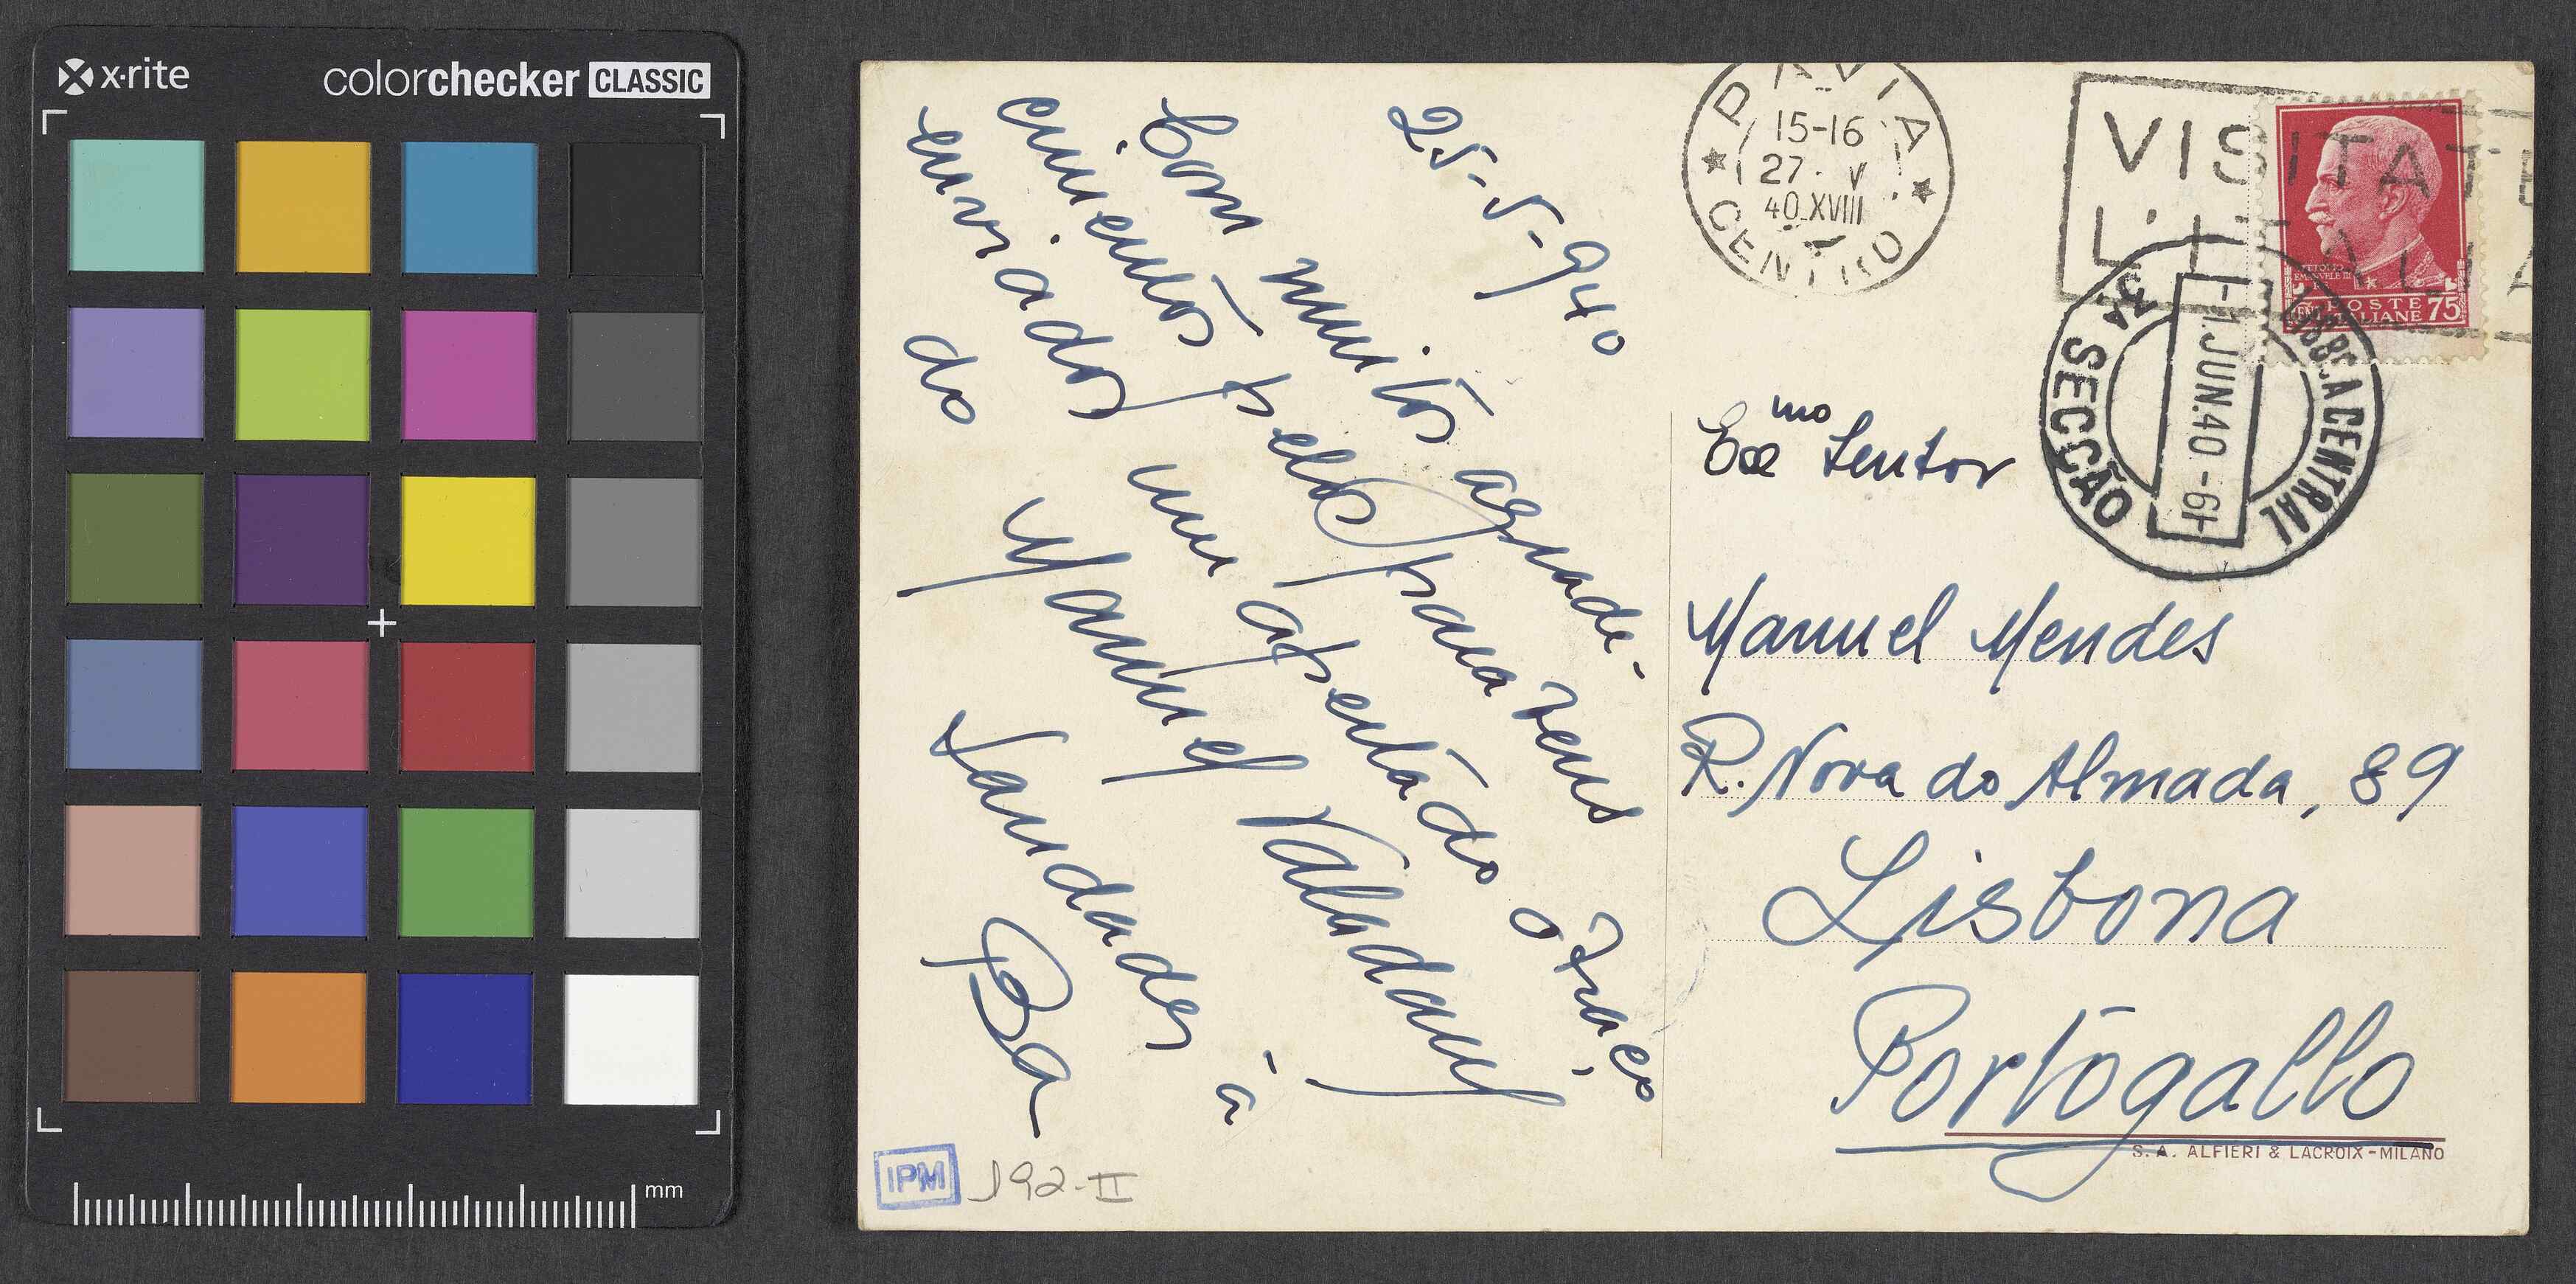 x·rite
colorchecker CLASSIC
mm
25-5-940
Com muitos agrade-
cimentos pelos parabens
enviados um apertado abraço
do Manuel Valadares
Saudades à
Ba
IPM
192-II
PAVIA
15-16
27. V
40.XVIII
CENTRO
VISITATE
L'ITALIA
POSTE
ITALIANE
75
CENT
VITTORIO
EMANUELE III
LISBOA CENTRAL
3ª SECÇÃO
-1.JUN.40-6
Exmo Senhor
Manuel Mendes
R. Nova do Almada, 89
Lisbona
Portogallo
S. A. ALFIERI & LACROIX-MILANO